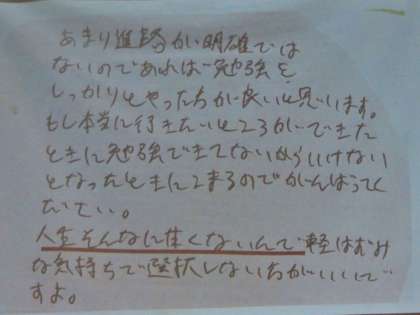 あまり進路が明確では
ないのであれば勉強を
しっかりとやった方が良いと思います。
もし本当に行きたいところができた
ときに勉強できてないからいけない
となったときにこまるのでがんばってく
ださい。
人生そんなに甘くないんで軽はずみ
な気持ちで選択しない方がいいで
すよ。